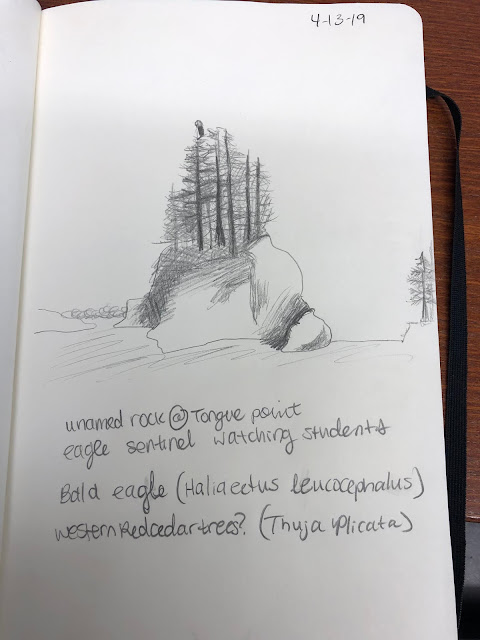 4-13-19
unamed rock @ Tongue point
eagle sentinel watching students
Bald eagle (Haliaectus leucocephalus)
western Redcedar trees? (Thuja plicata)